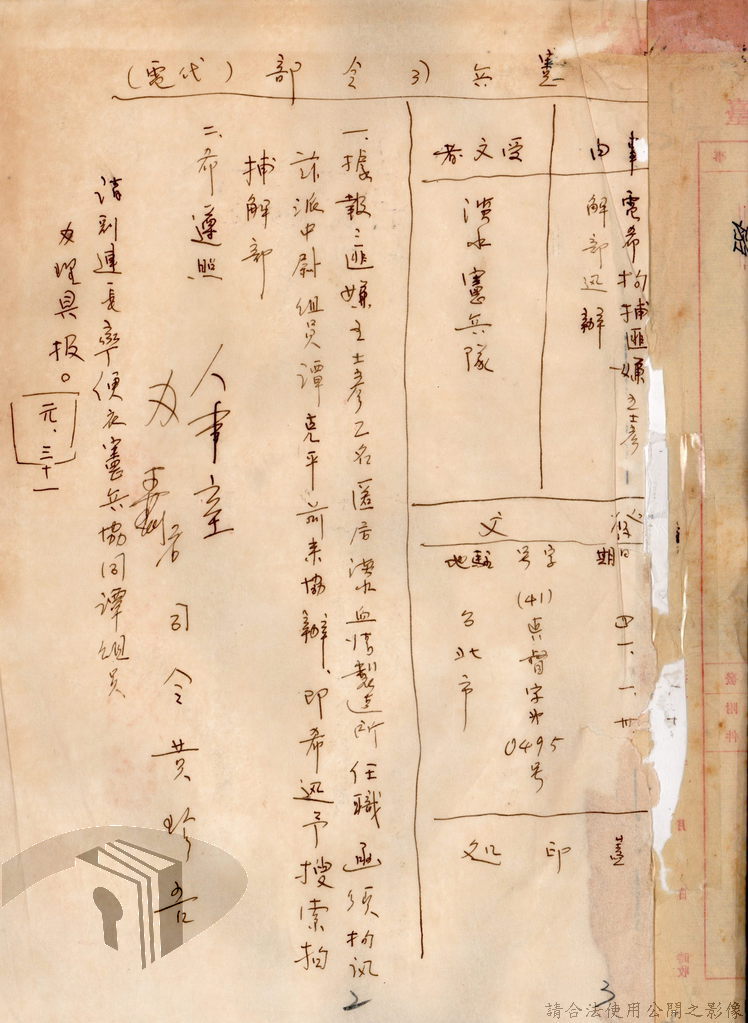 憲兵司令部(代電)
事由
電希拘捕匪嫌王士彥
解部迅辦
受文者
淡水憲兵隊
發文
日期
四一、一、卅
字号
(41)真督字第0495号
駐地
台北市
蓋印处
一、據報:匪嫌王士彥乙名匿居淡水血清製造所任職亟須拘訊
茲派中尉組員譚克平前来協辦、即希迅予搜索拘
捕解部
二、希遵照
兼司令黄珍吾
人事室
請劉連長率便衣憲兵協同譚組員
办理具报。
元、三十一
2
3
請合法使用公開之影像